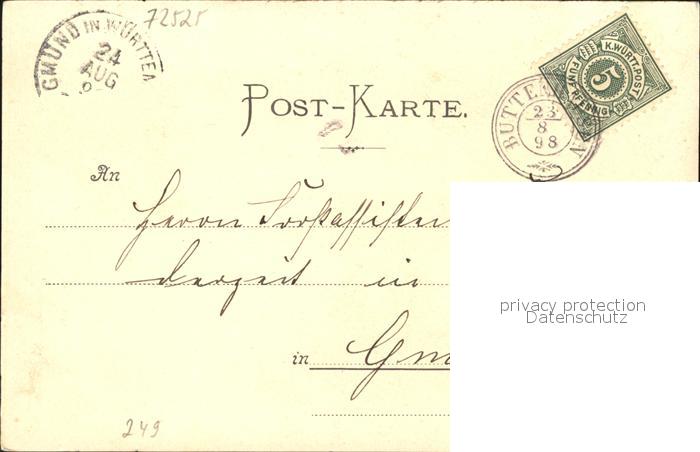 72525
GMÜND IN WÜRTTE
24
AUG
K.WÜRTT.POST
5
FÜNF PFENNIG
POST-KARTE.
BUTTEN
23
8
98
An
Herrn
derzeit in
privacy protection
Datenschutz
in Gm
249